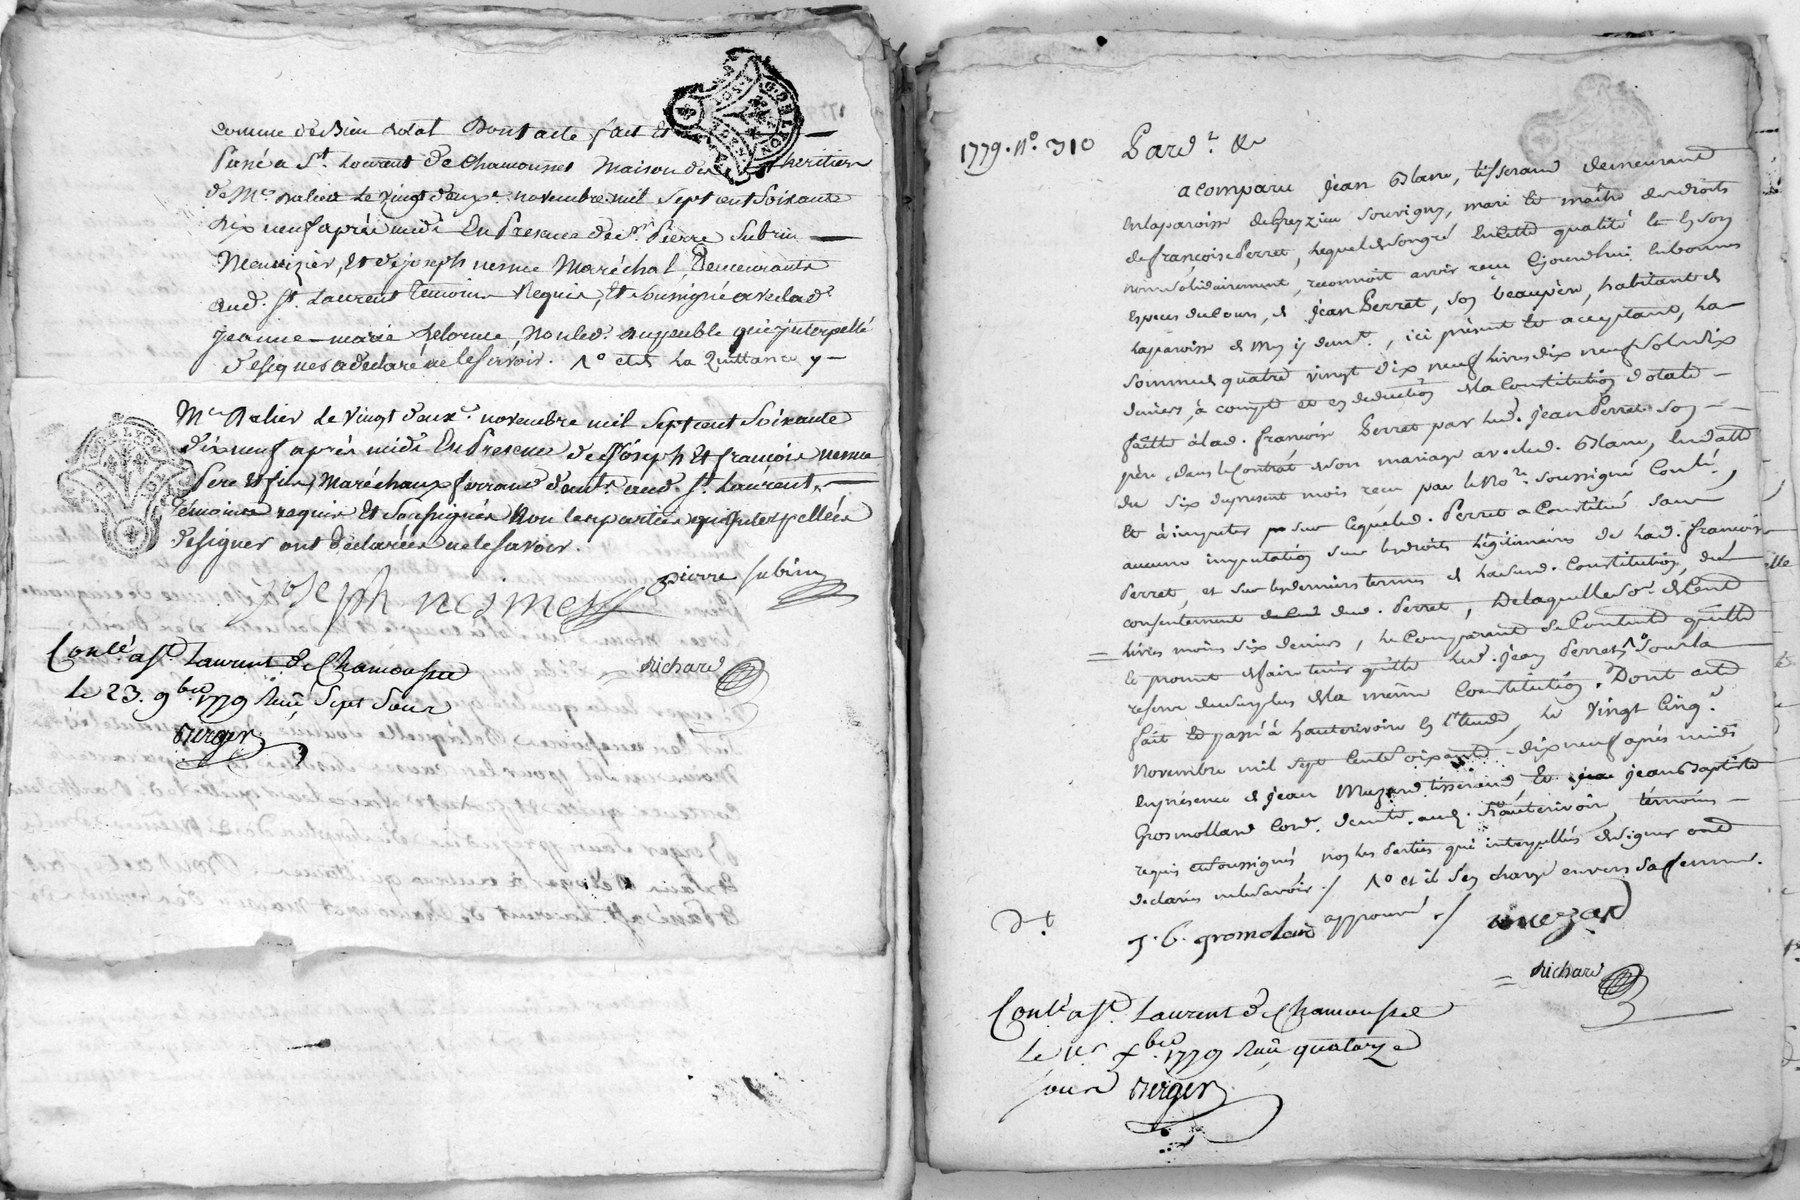 comme de Bien dotal Dont acte fait et
Passé a St. Laurent de Chamousset Maison des heritiers
de Me. Dalier Le vingt deuxe. novembre mil sept cent soixante
dix neuf après midi En Presence de sr. Pierre Subrin
Menuizier, Et de joseph nesme Maréchal, Demeurants
aud. St. Laurent temoins Requis, Et soussigné avec lad.
jeanne-marie Delorme, Non led. qui interpellé
de signer a declaré ne le sçavoir. La Quittance
Me Dalier Le vingt deuxe. novembre mil sept cent soixante
dix neuf après midi En Presence de Joseph Et françois nesme
Pere Et fils, Maréchaux ferrans demts. aud. St. Laurent
temoins requis Et soussignés Non les parties qui interpellées
de signer ont déclarées ne le savoir.
joseph nesme pierre subrin
Conlé. a St. Laurent de Chamousset
Richard
Le 23. 9bre 1779 Reçu sept sous
Berger
1779. No. 310 Pardt. &c
a comparu jean Blanc, tisserand demeurant
en la paroisse de Greyzieu Souvigny, mari et maître des droits
de françoise Perret, lequel de son gré en cette qualité et en son
nom solidairement, reconnoit avoir reçu ajourd'hui en bonnes
especes de cours, de jean Perret, son beaupère, habitant de
la paroisse de Mey y demt., ici présent et acceptant, la
somme de quatre vingt dix neuf livres dix neuf sols dix
deniers, à compte et en deduction de la Constitution dotale
faitte à lad. françoise Perret par led. jean Perret son
père, dans le Contrat de son mariage avec led. Blanc, en datte
du six du present mois reçu par le Nore. soussigné Conlé.,
Et à imputer sur ce que led. Perret a Constitué sans
aucune imputation sur les droits légitimaires de lad. françoise
Perret, et sur les derniers termes de la susd. Constitution, du
consentement dud. Perret, De laquelle so. de Cent
livres moins six deniers, le Comparant se Contente quitte
et promet de faire tenir quitte led. jean Perret, sous la
reserve du surplus de la même Constitution. Dont acte
fait et passé à hauterivoire en l'etude, le vingt cinq.
Novembre mil sept cent soixante-dix neuf après midi
en présence de jean Muzard tisserand, et jean Baptiste
Grosmolland Cordr. demts. aud. hauterivoir, témoins
requis et soussignés non les Parties qui interpellés de signer ont
déclarés ne le savoir ./ et il s'en charge envers sa femme.
approuvé ./
J. B. gromoland muzard
Richard
Conlé a St. Laurent de Chamousset
Le 1er Xbre. 1779 Reçu quatorze
sous Berger